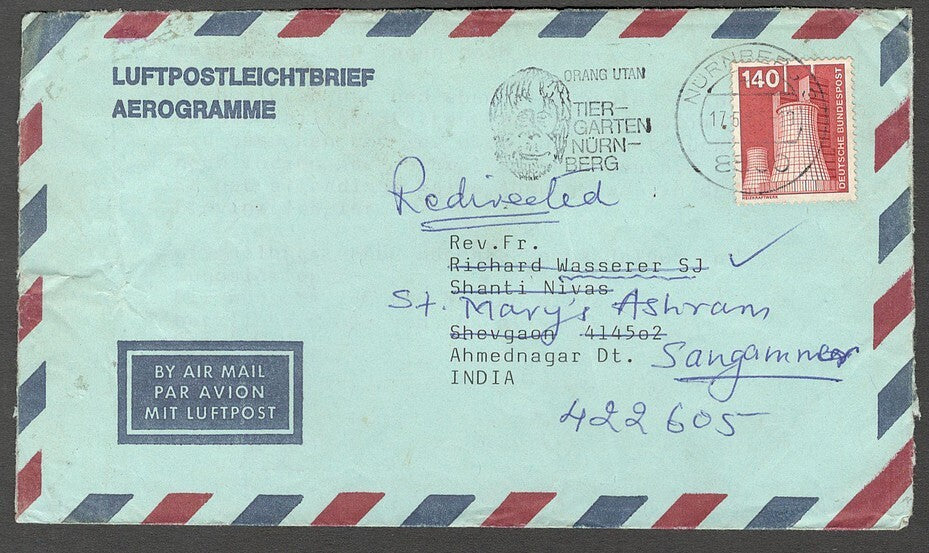 LUFTPOSTLEICHTBRIEF
AEROGRAMME
ORANG UTAN
TIER-
GARTEN
NÜRN-
BERG
NÜRNBERG
17.6
140
DEUTSCHE BUNDESPOST
HEIZKRAFTWERK
Redirected
Rev.Fr.
Richard Wasserer SJ
Shanti Nivas
St. Mary's Ashram
Shevgaon 4145o2
Ahmednagar Dt. Sangamner
INDIA
422 605
BY AIR MAIL
PAR AVION
MIT LUFTPOST